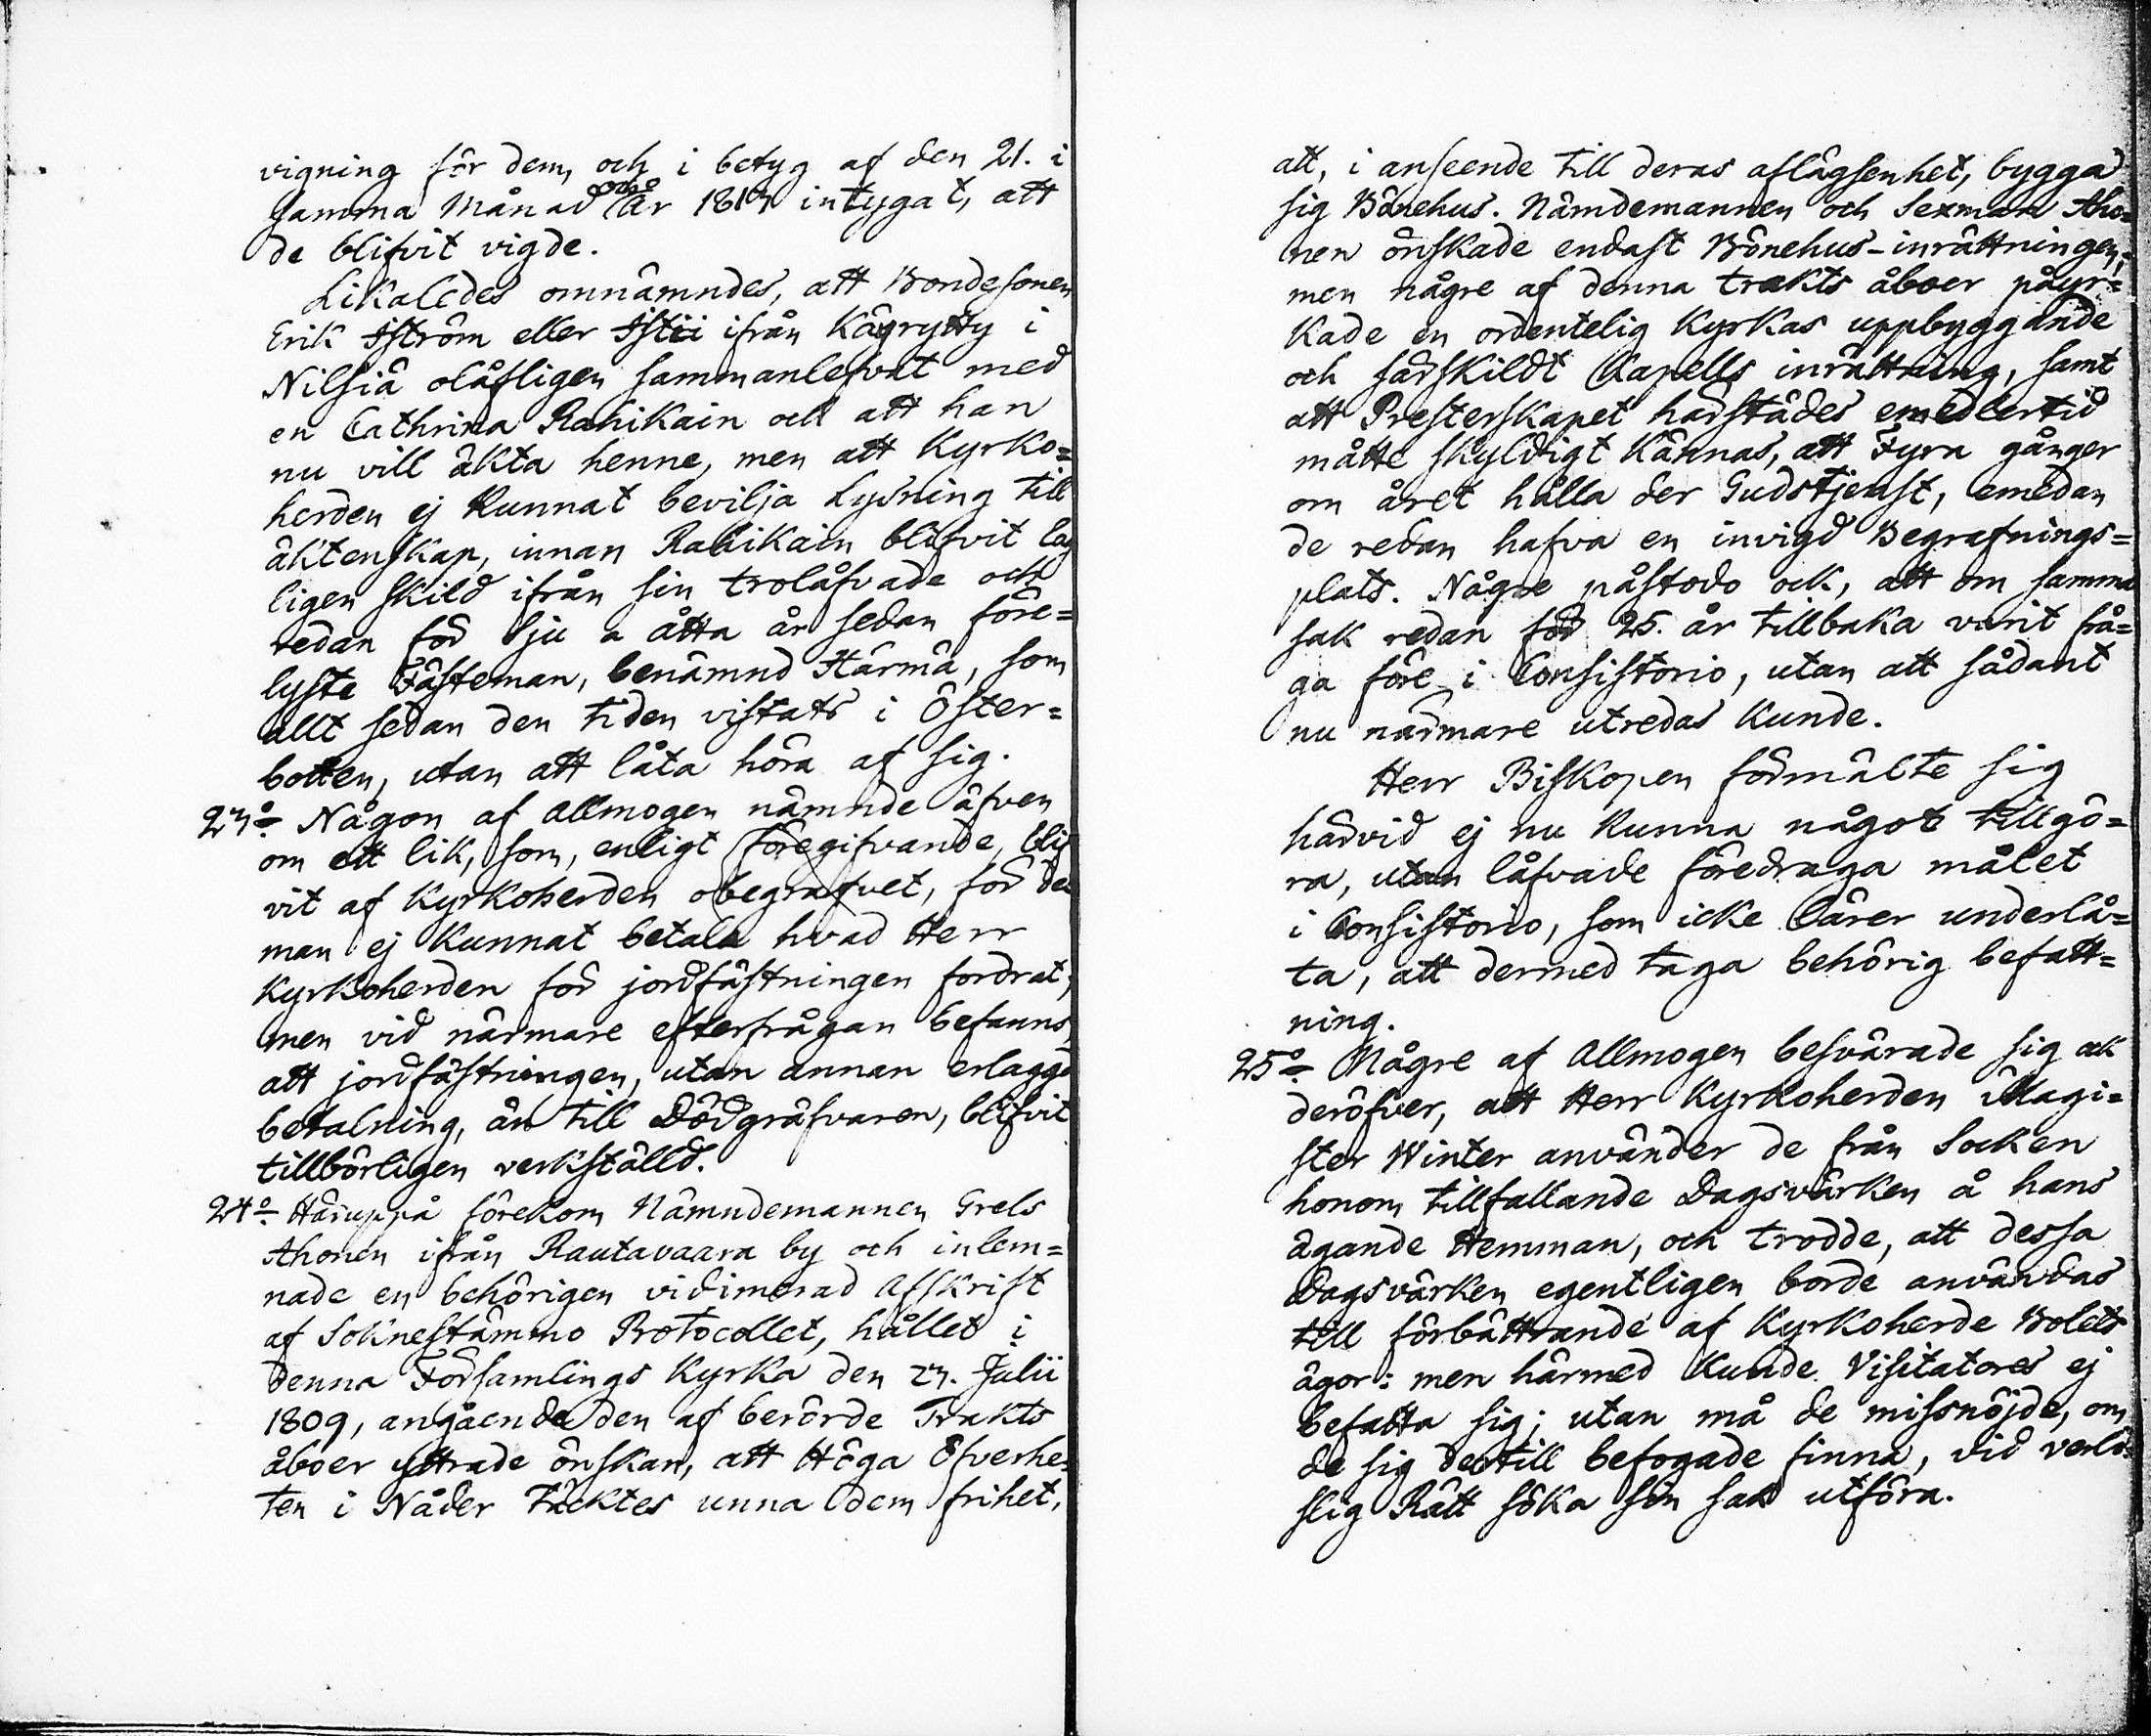 vigning för dem, och i betyg af den 21. i
samma Månad och År 1817 intygat, att
de blifvit vigde.
Likaledes omnämndes, att Bondesonen
Erik Iström eller Istii ifrån Käyrytty i
Nilsiä olåfligen sammanlefvat med
en Cathrina Rahikain och att han
nu vill äkta henne, men att Kyrko=
herden ej kunnat bevilja Lysning till
äktenskap, innan Rahikain blifvit lag
ligen skild ifrån sin trolåfvade och
redan för sju a åtta år sedan före=
lyste Fästeman, benämnd Härmä, som
allt sedan den tiden vistats i Öster=
botten, utan att låta höra af sig.
23º. Någon af allmogen nämnde äfven
om ett lik, som, enligt föregifvande, blif
vit af Kyrkoherden obegrafvet, för det
man ej kunnat betala hvad Herr
Kyrkoherden för jordfästningen fordrat;
men vid närmare efterfrågan befanns,
att jordfästningen, utan annan erlagd
betalning, än till Dödgräfvaren, blifvit
tillbörligen verkställd.
24º. Häruppå förekom Nämndemannen Grels
Ahonen ifrån Rautavaara by och inlem=
nade en behörigen vidimerad Afskrift
af Soknestämmo Protocollet, hållet i
denna Församlings Kyrka den 23. Julii
1809, angående den af berörde Trakts
åboer yttrade önskan, att Höga Öfverhe=
ten i Nåder täcktes unna dem frihet,
att, i anseende till deras aflägsenhet, bygga
sig Bönehus. Nämdemannen och Sexman Aho=
nen önskade endast Bönehus-inrättningen;
men någre af denna trakts åboer påyr=
kade en ordentelig Kyrkas uppbyggande
och särskildt Capells inrättning, samt
att Presterskapet härstädes emedlertid
måtte skyldigt kännas, att Fyra gånger
om året hålla der Gudstjenst, emedan
de redan hafva en invigd Begrafnings=
plats. Någre påstodo ock, att om samma
sak redan för 25. år tillbaka varit frå=
ga före i Consistorio, utan att sådant
nu närmare utredas kunde.
Herr Biskopen förmälte sig
härvid ej nu kunna något tillgö=
ra, utan låfvade föredraga målet
i Consistorio, som icke lärer underlå=
ta, att dermed taga behörig befatt=
ning.
25º. Någre af Allmogen besvärade sig ock
deröfver, att Herr Kyrkoherden Magi=
ster Winter använder de från Socken
honom tillfallande Dagsvärken å hans
ägande Hemman, och trodde, att dessa
Dagsvärken egentligen borde användas
till förbättrande af Kyrkoherde Bolets
ägor: men härmed kunde Visitatores ej
befatta sig; utan må de missnöjde, om
de sig dertill befogade finna, vid verld=
slig Rätt söka sin sak utföra.